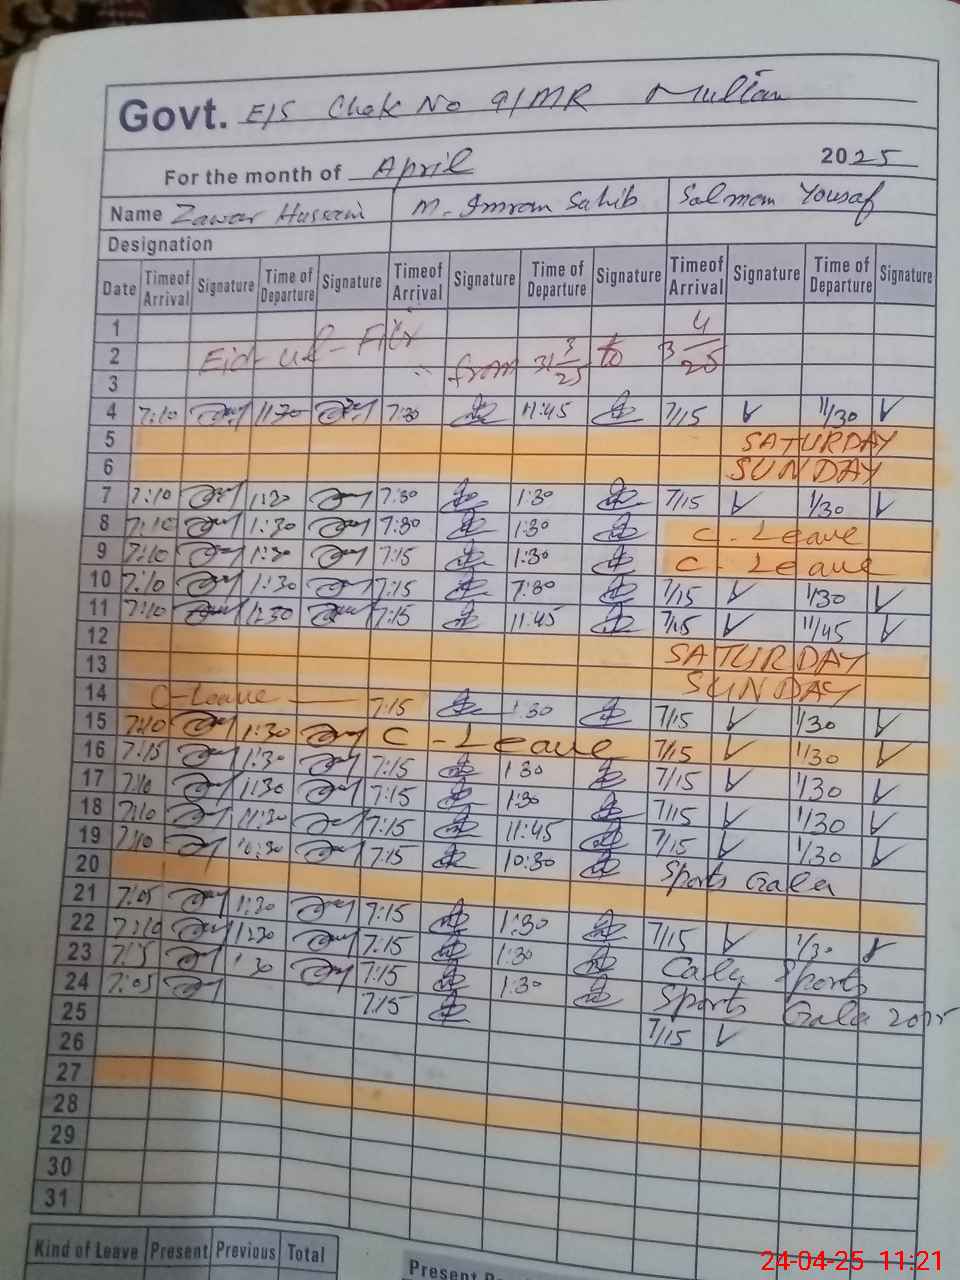 Govt. E/S Chak No 9/MR Multan
For the month of April 2025
Name Zawar Hussain M. Imran Sahib Salman Yousaf
Designation
Date Timeof Arrival Signature Time of Departure Signature Timeof Arrival Signature Time of Departure Signature Timeof Arrival Signature Time of Departure Signature
1
2 Eid-ul-Fitr from 31 3/25 to 3 4/25
3
4 7:10 11:30 7:30 11:45 7/15 11/30
5 SATURDAY
6 SUNDAY
7 7:10 1:30 7:30 1:30 7/15 1/30
8 7:10 1:30 7:30 1:30 C-Leave
9 7:10 1:30 7:15 1:30 C-Leave
10 7:10 1:30 7:15 7:30 7/15 1/30
11 7:10 7:15 11:45 7/15 11/45
12 SATURDAY
13 SUNDAY
14 C-Leave 7:15 1:30 7/15 1/30
15 7:10 1:30 C-Leave 7/15 1/30
16 7:15 1:30 7:15 1:30 7/15 1/30
17 7:10 1:30 7:15 1:30 7/15 1/30
18 7:10 11:30 7:15 11:45 7/15 1/30
19 7:10 10:30 7:15 10:30 Sports Gala
20
21 7:05 1:30 7:15 1:30 7/15 1/30
22 7:10 1:30 7:15 1:30 Sports
23 1:30 7:15 1:30 Sports Gala
24 7:05 7:15 7/15
25
26
27
28
29
30
31
Kind of Leave Present Previous Total
Present
24-04-25 11:21